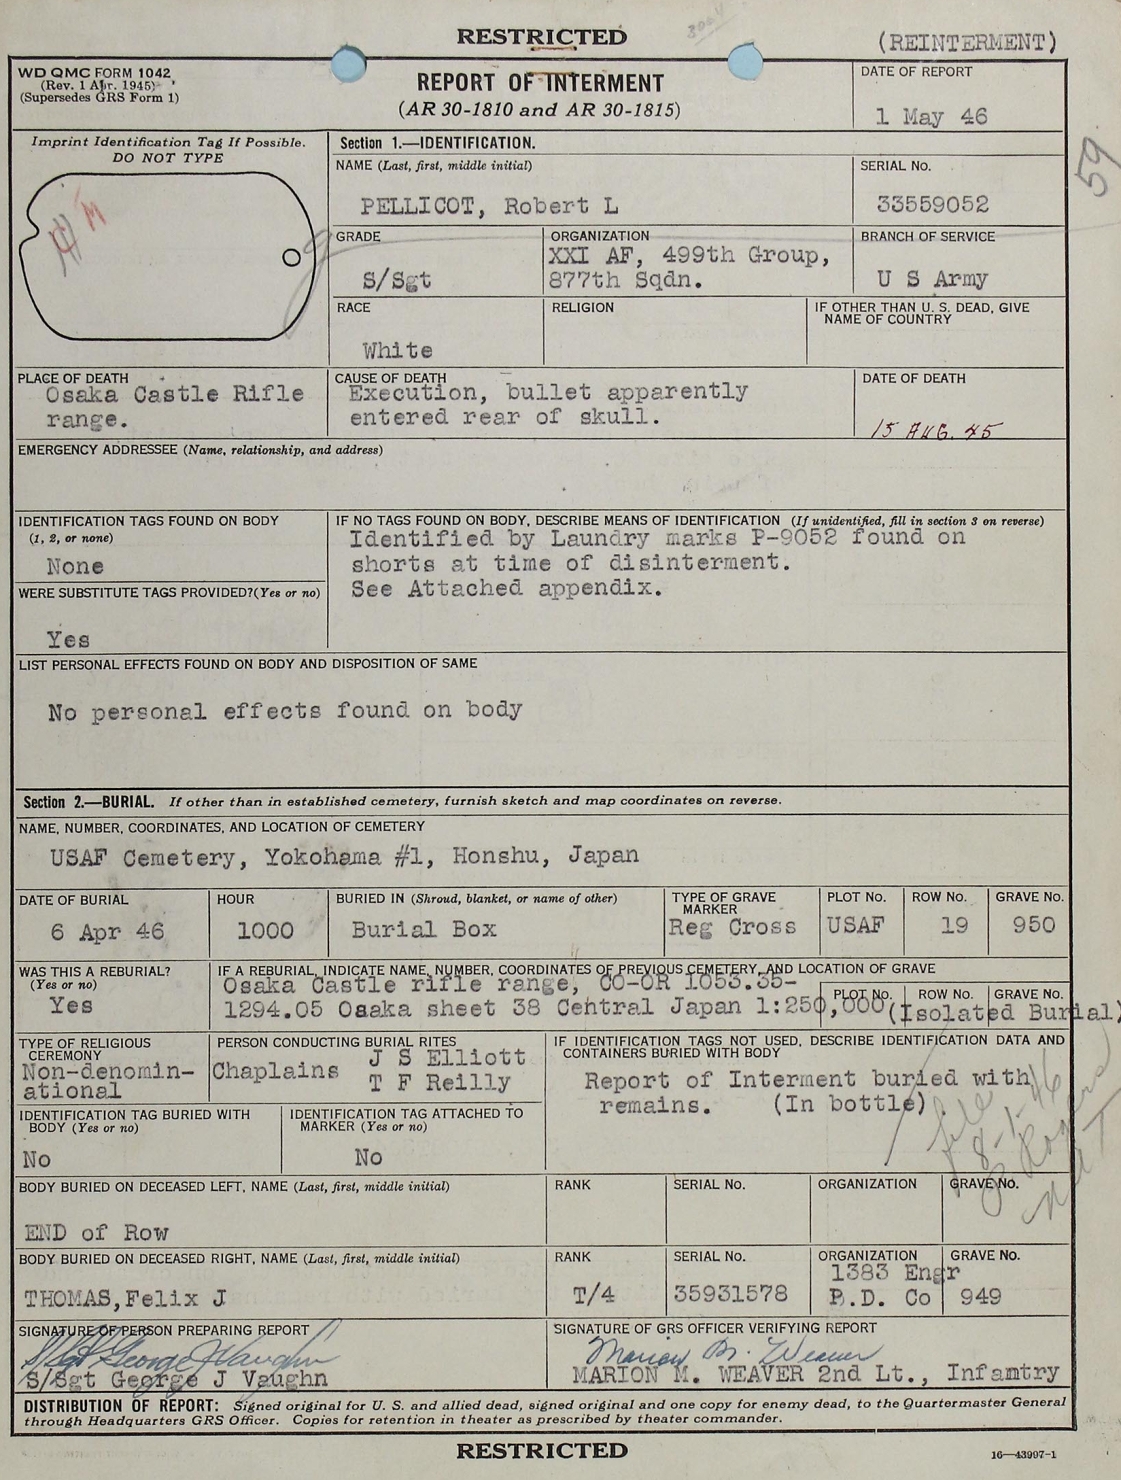 RESTRICTED
(REINTERMENT)
WD QMC FORM 1042
(Rev. 1 Apr. 1945)
(Supersedes GRS Form 1)
REPORT OF INTERMENT
(AR 30-1810 and AR 30-1815)
DATE OF REPORT
1 May 46
59
Imprint Identification Tag If Possible.
DO NOT TYPE
Section 1.—IDENTIFICATION.
NAME (Last, first, middle initial)
PELLICOT, Robert L
SERIAL No.
33559052
GRADE
S/Sgt
ORGANIZATION
XXI AF, 499th Group,
877th Sqdn.
BRANCH OF SERVICE
U S Army
RACE
White
RELIGION
IF OTHER THAN U. S. DEAD, GIVE
NAME OF COUNTRY
PLACE OF DEATH
Osaka Castle Rifle
range.
CAUSE OF DEATH
Execution, bullet apparently
entered rear of skull.
DATE OF DEATH
15 AUG. 45
EMERGENCY ADDRESSEE (Name, relationship, and address)
IDENTIFICATION TAGS FOUND ON BODY
(1, 2, or none)
None
WERE SUBSTITUTE TAGS PROVIDED? (Yes or no)
Yes
IF NO TAGS FOUND ON BODY, DESCRIBE MEANS OF IDENTIFICATION (If unidentified, fill in section 3 on reverse)
Identified by Laundry marks P-9052 found on
shorts at time of disinterment.
See Attached appendix.
LIST PERSONAL EFFECTS FOUND ON BODY AND DISPOSITION OF SAME
No personal effects found on body
Section 2.—BURIAL. If other than in established cemetery, furnish sketch and map coordinates on reverse.
NAME, NUMBER, COORDINATES, AND LOCATION OF CEMETERY
USAF Cemetery, Yokohama #1, Honshu, Japan
DATE OF BURIAL
6 Apr 46
HOUR
1000
BURIED IN (Shroud, blanket, or name of other)
Burial Box
TYPE OF GRAVE
MARKER
Reg Cross
PLOT No.
USAF
ROW No.
19
GRAVE No.
950
WAS THIS A REBURIAL?
(Yes or no)
Yes
IF A REBURIAL, INDICATE NAME, NUMBER, COORDINATES OF PREVIOUS CEMETERY, AND LOCATION OF GRAVE
Osaka Castle rifle range, CO-OR 1053.35-
1294.05 Osaka sheet 38 Central Japan 1:250,000 (Isolated Burial)
PLOT No.
ROW No.
GRAVE No.
TYPE OF RELIGIOUS
CEREMONY
Non-denomin-
ational
PERSON CONDUCTING BURIAL RITES
Chaplains J S Elliott
T F Reilly
IF IDENTIFICATION TAGS NOT USED, DESCRIBE IDENTIFICATION DATA AND
CONTAINERS BURIED WITH BODY
Report of Interment buried with
remains. (In bottle).
file
8-1-46
IDENTIFICATION TAG BURIED WITH
BODY (Yes or no)
No
IDENTIFICATION TAG ATTACHED TO
MARKER (Yes or no)
No
BODY BURIED ON DECEASED LEFT, NAME (Last, first, middle initial)
END of Row
RANK
SERIAL No.
ORGANIZATION
GRAVE No.
BODY BURIED ON DECEASED RIGHT, NAME (Last, first, middle initial)
THOMAS,Felix J
RANK
T/4
SERIAL No.
35931578
ORGANIZATION
1383 Engr
P.D. Co
GRAVE No.
949
SIGNATURE OF PERSON PREPARING REPORT
S/Sgt George J Vaughn
S/Sgt George J Vaughn
SIGNATURE OF GRS OFFICER VERIFYING REPORT
Marion M. Weaver
MARION M. WEAVER 2nd Lt., Infamtry
DISTRIBUTION OF REPORT: Signed original for U. S. and allied dead, signed original and one copy for enemy dead, to the Quartermaster General
through Headquarters GRS Officer. Copies for retention in theater as prescribed by theater commander.
RESTRICTED
16—43997-1